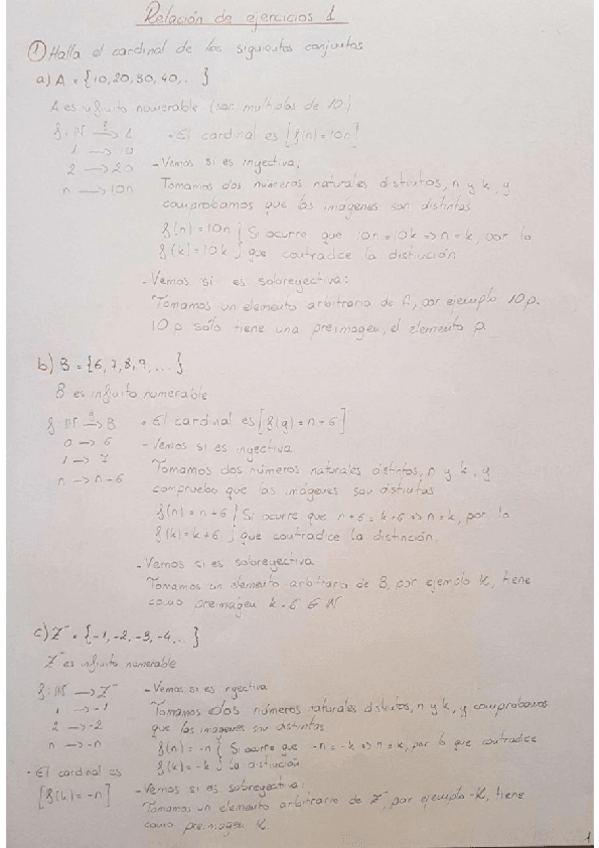 Relación de ejercicios 1
① Halla el cardinal de los siguientes conjuntos
a) A = {10, 20, 30, 40, ...}
A es infinito numerable (son multiplos de 10)
f: N → A · El cardinal es [f(n) = 10n]
1 → 10
2 → 20 - Vemos si es inyectiva:
n → 10n Tomamos dos números naturales distintos, n y k, y
comprobamos que las imágenes son distintas
f(n) = 10n } Si ocurre que 10n = 10k => n = k, por lo
f(k) = 10k } que contradice la distinción
- Vemos si es sobreyectiva:
Tomamos un elemento arbitrario de A, por ejemplo 10p.
10p sólo tiene una preimagen, el elemento p.
b) B = {6, 7, 8, 9, ...}
B es infinito numerable
f: N → B · El cardinal es [f(g) = n+6]
0 → 6 - Vemos si es inyectiva
1 → 7 Tomamos dos números naturales distintos, n y k, y
n → n-6 compruebo que las imágenes son distintas
f(n) = n+6 } Si ocurre que n+6 = k+6 => n = k, por lo
f(k) = k+6 } que contradice la distinción.
- Vemos si es sobreyectiva
Tomamos un elemento arbitrario de B, por ejemplo K, tiene
como preimagen k-6 ∈ N
c) Z⁻ = {-1, -2, -3, -4, ...}
Z⁻ es infinito numerable
f: N → Z⁻ - Vemos si es inyectiva
1 → -1 Tomamos dos números naturales distintos, n y k, y comprobamos
2 → -2 que las imágenes son distintas
n → -n f(n) = -n } Si ocurre que -n = -k => n = k, por lo que contradice
· El cardinal es f(k) = -k } la distinción
[f(n) = -n] - Vemos si es sobreyectiva:
Tomamos un elemento arbitrario de Z⁻, por ejemplo -K, tiene
como preimagen K.
1